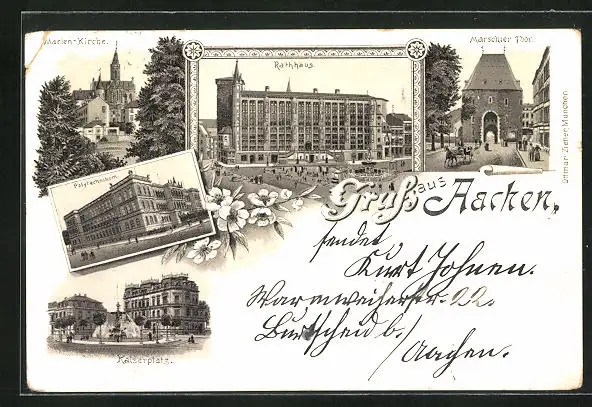 Marien-Kirche.
Rathhaus.
Marschier Thor.
Polytechnikum.
Ottmar Zieher, München
Gruß aus Aachen.
Kaiserplatz.
sendet
Kurt Johnen.
Warmweiherstr. 22.
Burtscheid b/
Aachen.